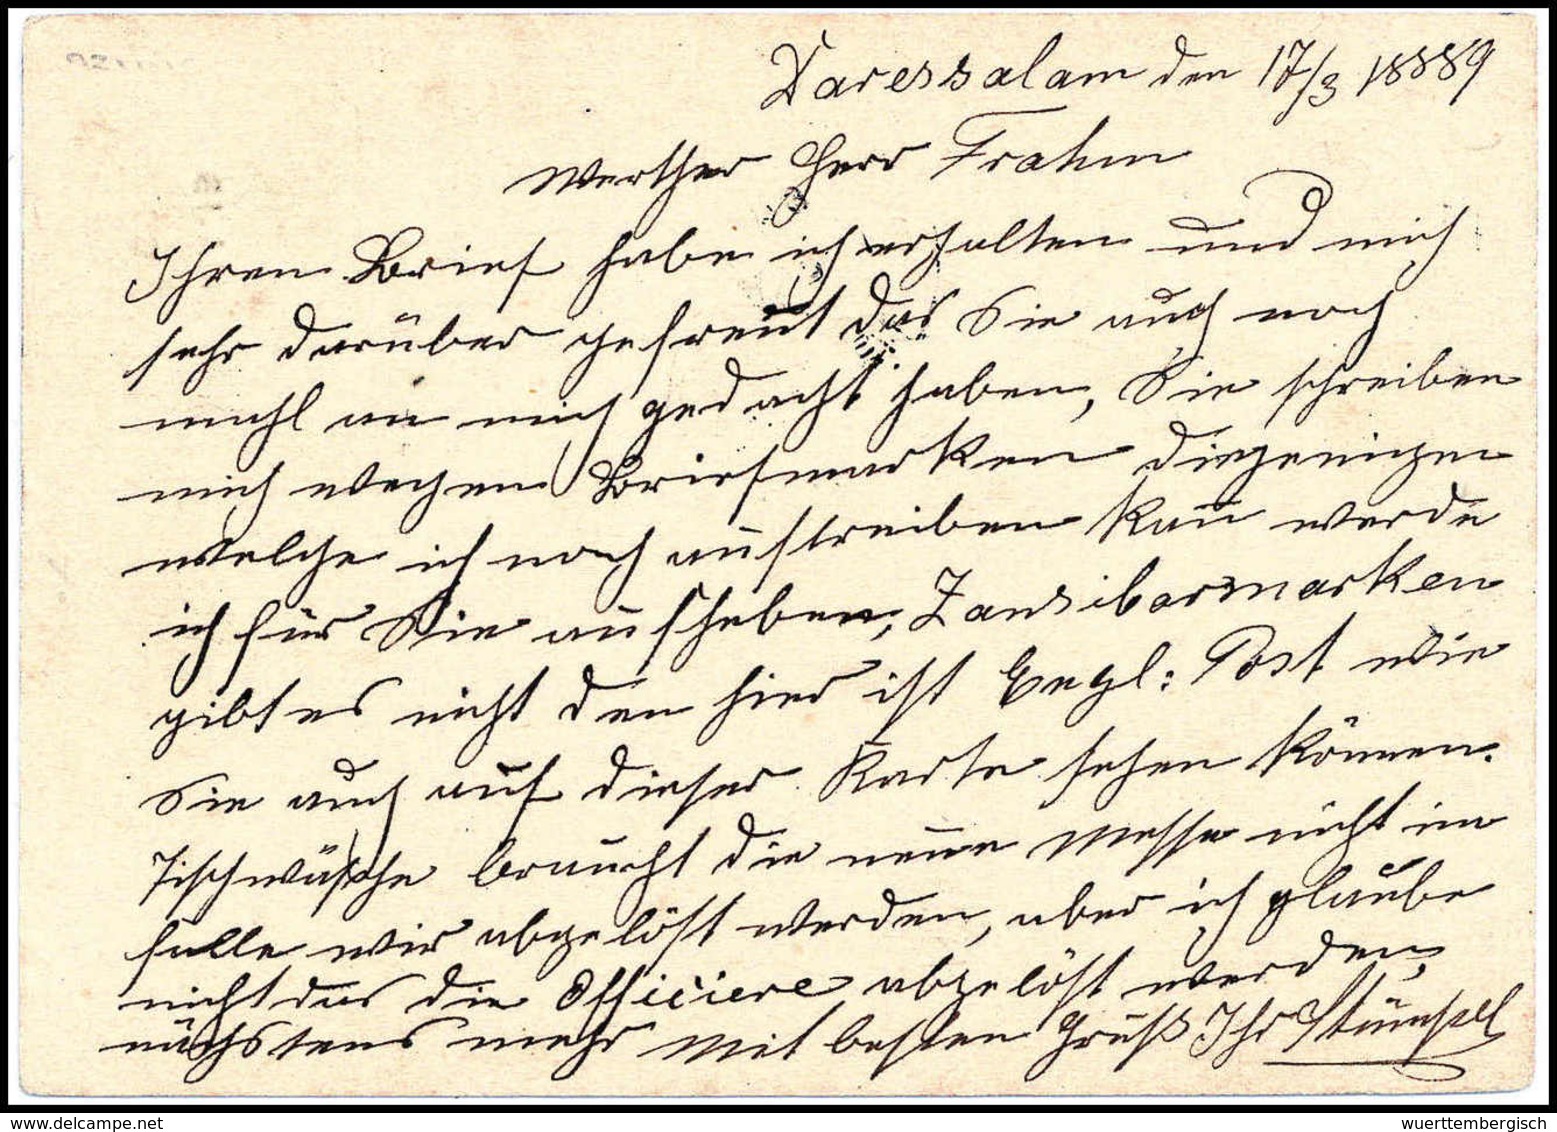 Daressalam den 17/3 18889
Werther Herr Frahm
Ihren Brief habe ich erhalten und mich
sehr darüber gefreut das Sie auch noch
mahl an mich gedacht haben, Sie schreiben
mich wegen Briefmarken diejenigen
welche ich noch auftreiben kan werde
ich für Sie aufheben, Zansibarmarken
gibt es nicht den hier ist Engl: Post wie
Sie auch auf dieser Karte sehen können.
Tischwäsche braucht die neue Messe nicht im
falle wir abgelöst werden, aber ich glaube
nicht das die Officiere abgelöst werden,
nächstens mehr Mit besten Gruß Ihr
delcampe.net
wuerttembergisch